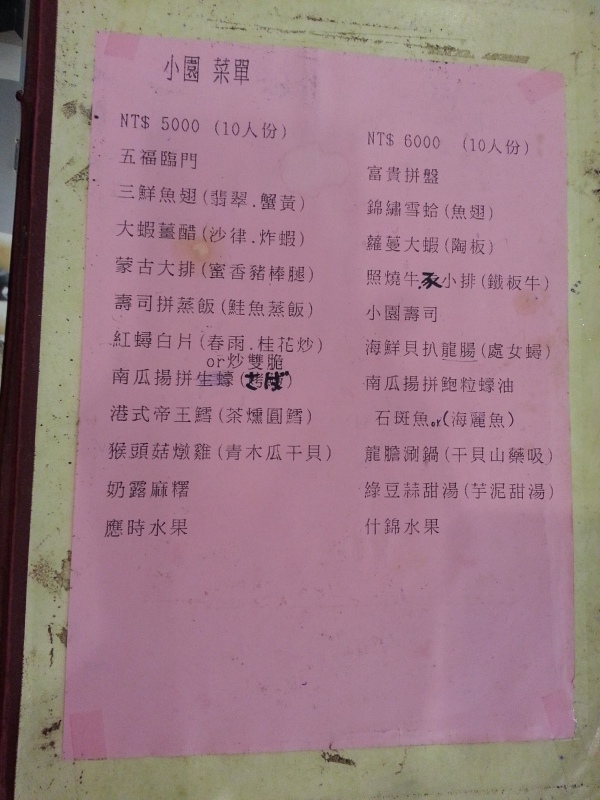 小園 菜單
NT$ 5000 (10人份)
五福臨門
三鮮魚翅(翡翠.蟹黃)
大蝦薑醋(沙律.炸蝦)
蒙古大排(蜜香豬棒腿)
壽司拼蒸飯(鮭魚蒸飯)
紅蟳白片(春雨.桂花炒)
or炒雙脆
南瓜揚拼生蠔(さば)
港式帝王鱈(茶燻圓鱈)
猴頭菇燉雞(青木瓜干貝)
奶露麻糬
應時水果
NT$ 6000 (10人份)
富貴拼盤
錦繡雪蛤(魚翅)
蘿蔓大蝦(陶板)
照燒牛小排(鐵板牛)
小園壽司
海鮮貝扒龍腸(處女蟳)
南瓜揚拼鮑粒蠔油
石斑魚or(海麗魚)
龍膽涮鍋(干貝山藥吸)
綠豆蒜甜湯(芋泥甜湯)
什錦水果